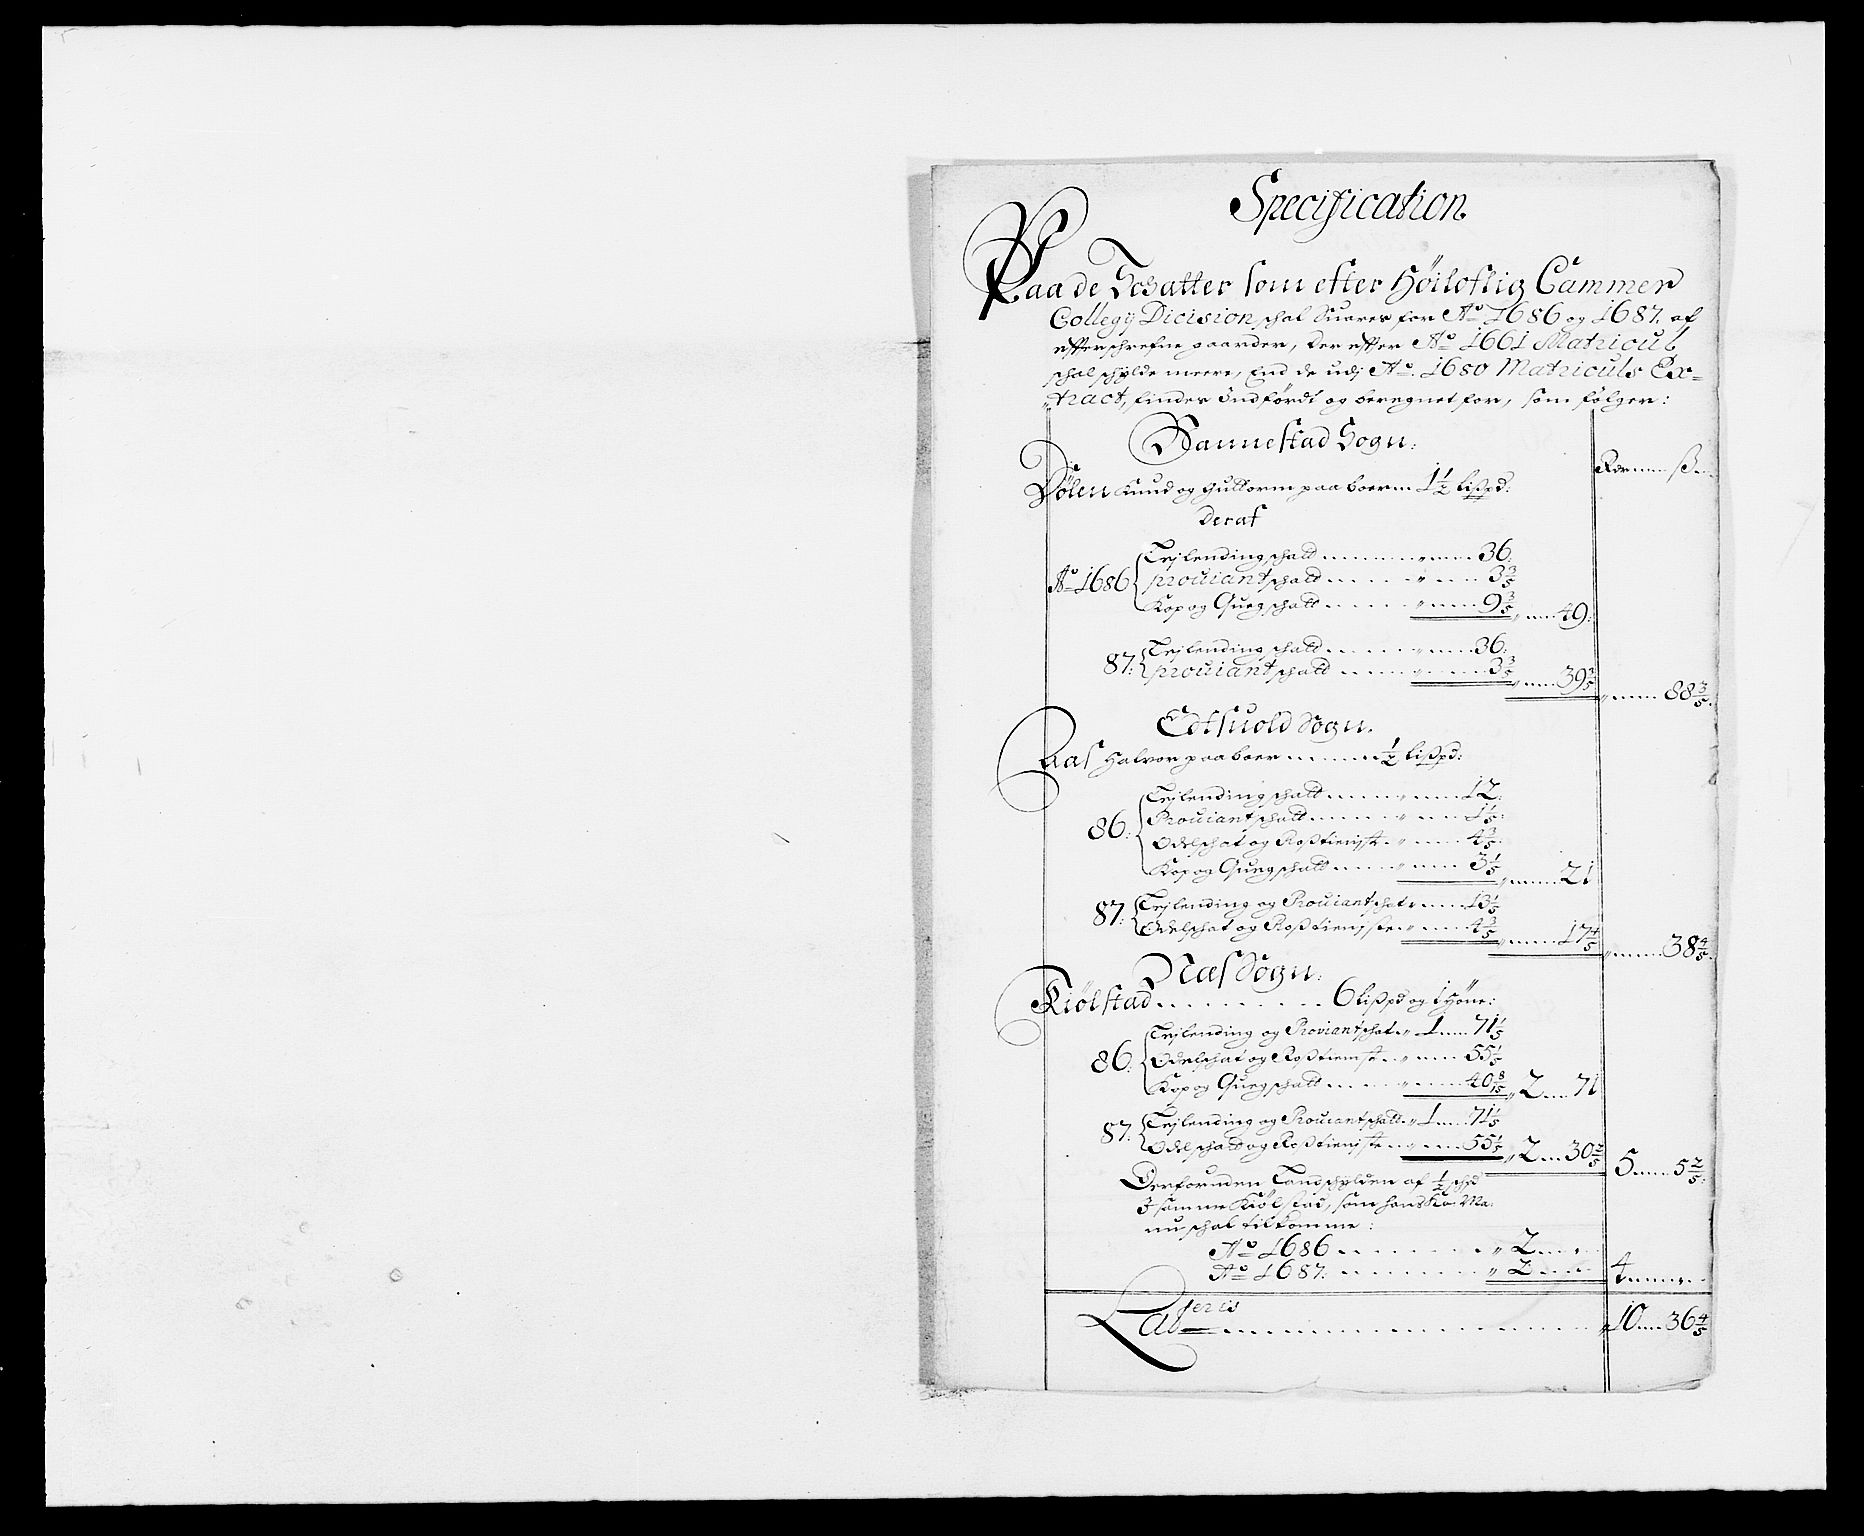 Specification
Paa de Schatter som efter Höiloflig Cammer
Collegÿ Dicision schal Suares for Ao 1686 og 1687. af
effterschrefne gaarder, der effter Ao 1661 Matricul
schal schylde meere, End de udj Ao. 1680 Matriculs Ex=
tract, findes Indfördt og beregnet for, som følger:
Bannestad Sogn.
Rdr ß
Dölen Knud og Guttorm paaboer 1½ lißpd:
Deraf
Lejlending schatt 36:
Ao 1686 prouiant schatt 3 3/5
Kop og Quegschatt 9 3/5 49:
Lejlending schatt 36:
87: prouiant schatt 3 3/5 39 3/5 88 3/5
Edtsuold Sogn.
Aas Halvor paaboer ½ lißpd:
Lejlending schatt 12:
Prouiant schatt 1 1/5:
86: Odelschat og Roßtienste 4 3/5
Kop og Quegschatt 3 1/5 21
87: Lejlending og Prouiantschat 13 1/5
Odelschat og Roßtienste 4 3/5 17 4/5 38 4/5
Næs Sogn.
Kiölstad 6 lißpd og 1 Höne:
Lejlending og Proviantschat 1 71 1/5
86: Odelschat og Roßtienst 55 1/5
Kop og Quegschatt 40 8/15 2 71
87: Lejlending og Prouiantschatt 1 71 1/5
Odelschatt og Roßtienste 55 1/5 2 30 2/5 5 5 2/5:
Derforuden Landschylden af ½ schpd
J samme Kiölstad, som hans Ko: Ma:
nu schal tilkomme:
Ao 1686 2
Ao 1687: 2 4
Lateris 10 36 4/5